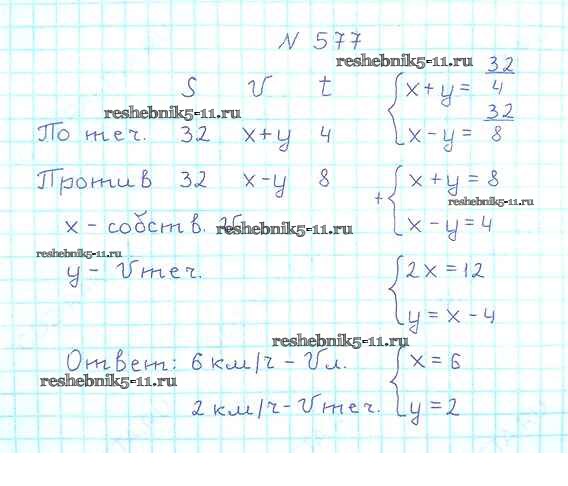 N 577
reshebnik5-11.ru
S V t
x+y = 32/4
reshebnik5-11.ru
x-y = 32/8
По теч. 32 x+y 4
Против 32 x-y 8
x+y=8
+
reshebnik5-11.ru
x-y=4
x - собств.
reshebnik5-11.ru
reshebnik5-11.ru
y - Vтеч.
2x=12
y=x-4
reshebnik5-11.ru
Ответ: 6 км/ч - Vл.
x=6
reshebnik5-11.ru
2 км/ч - Vтеч.
y=2